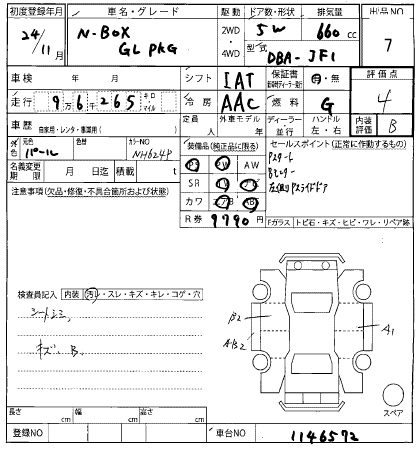 初度登録年月 車名・グレード 駆動 ドア数・形状 排気量 出品NO
24/11月 N-BOX GL PKG 2WD・4WD 5W 660cc 7
型式 DBA-JF1
車検 年 月 シフト IAT 保証書 有・無 評価点
走行 9万6千265 キロ・マイル 冷房 AAC 燃料 G 4
車歴 自家用・レンタ・事業用( ) 定員 人 外車モデル 年 ディーラー・並行 ハンドル 左・右 内装評価 B
外色 元色 パール 色替 カラーNO NH624P 装備品(純正品に限る) セールスポイント(正常に作動するもの)
名義変更期限 月 日迄 積載 t PS PW Pスタート
SR AW ナビ Bモニター
注意事項(欠品・修復・不具合箇所および状態) カワ エアB AB 左側Pスライドドア
R券 9790円 Fガラス トビ石・キズ・ヒビ・ワレ・リペア跡
検査員記入 内装 汚レ・スレ・キズ・キレ・コゲ・穴
シートシミ
キズ、B
B2
A1
スペア
長さ cm 幅 cm 高さ cm
登録NO 車台NO 1146572